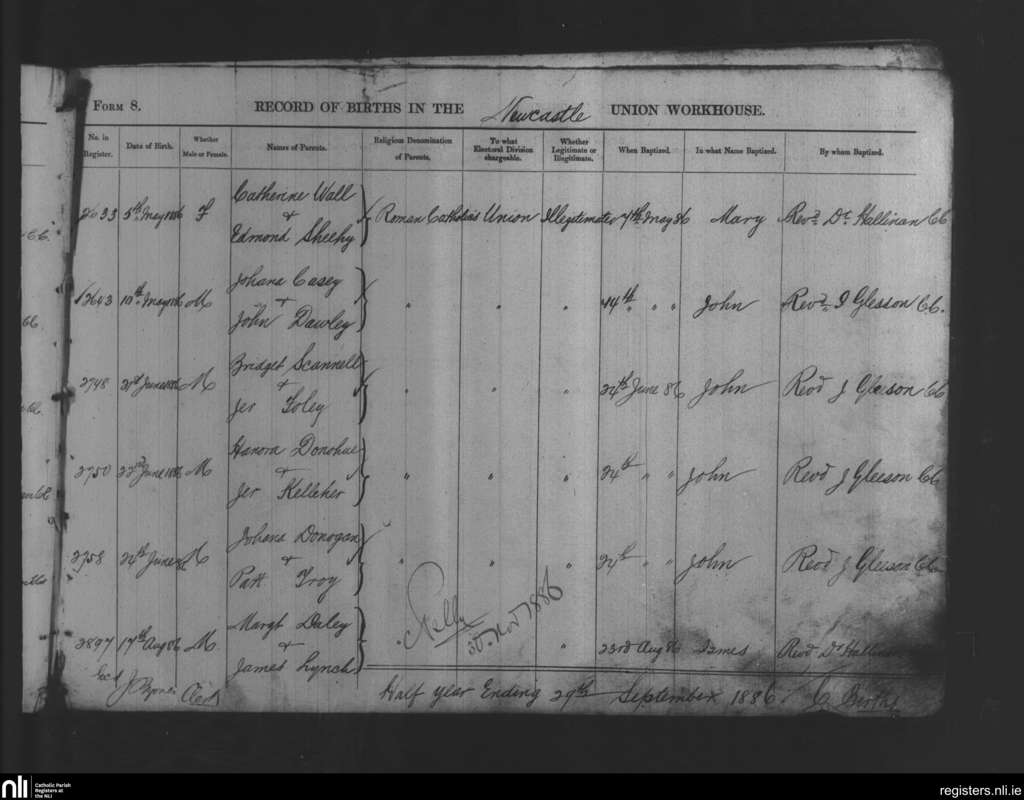 FORM 8. RECORD OF BIRTHS IN THE Newcastle UNION WORKHOUSE.
No. in Register. Date of Birth. Whether Male or Female. Names of Parents. Religious Denomination of Parents. To what Electoral Division chargeable. Whether Legitimate or Illegitimate. When Baptized. In what Name Baptized. By whom Baptized.
Catherine Wall
2633 5th May 1886 F & Roman Catholics Union Illegitimate 7th May 86 Mary Revd. Dr. Hallinan CC
Edmond Sheehy
Johana Casey
2643 10th May 86 M & " " " 14th " " John Revd. J Gleeson CC.
John Dawley
Bridget Scannell
2748 21st June 1886 M & " " " 24th June 86 John Revd J Gleeson CC
Jer Foley
Hanora Donohue
2750 22nd June 1886 M & " " " 24th " " John Revd J Gleeson CC
Jer Kelleher
Johana Donogan
2758 24th June M & " " " 24th " " John Revd J Gleeson CC
Patt Troy
Kelly
30 Nov 1886
Margt Daley
2897 17th Aug 86 M & " " 23rd Aug 86 James Revd Dr Hallinan
James Lynch
Clerk
Half year Ending 29th September 1886. 6 Births
nli Catholic Parish Registers at the NLI
registers.nli.ie